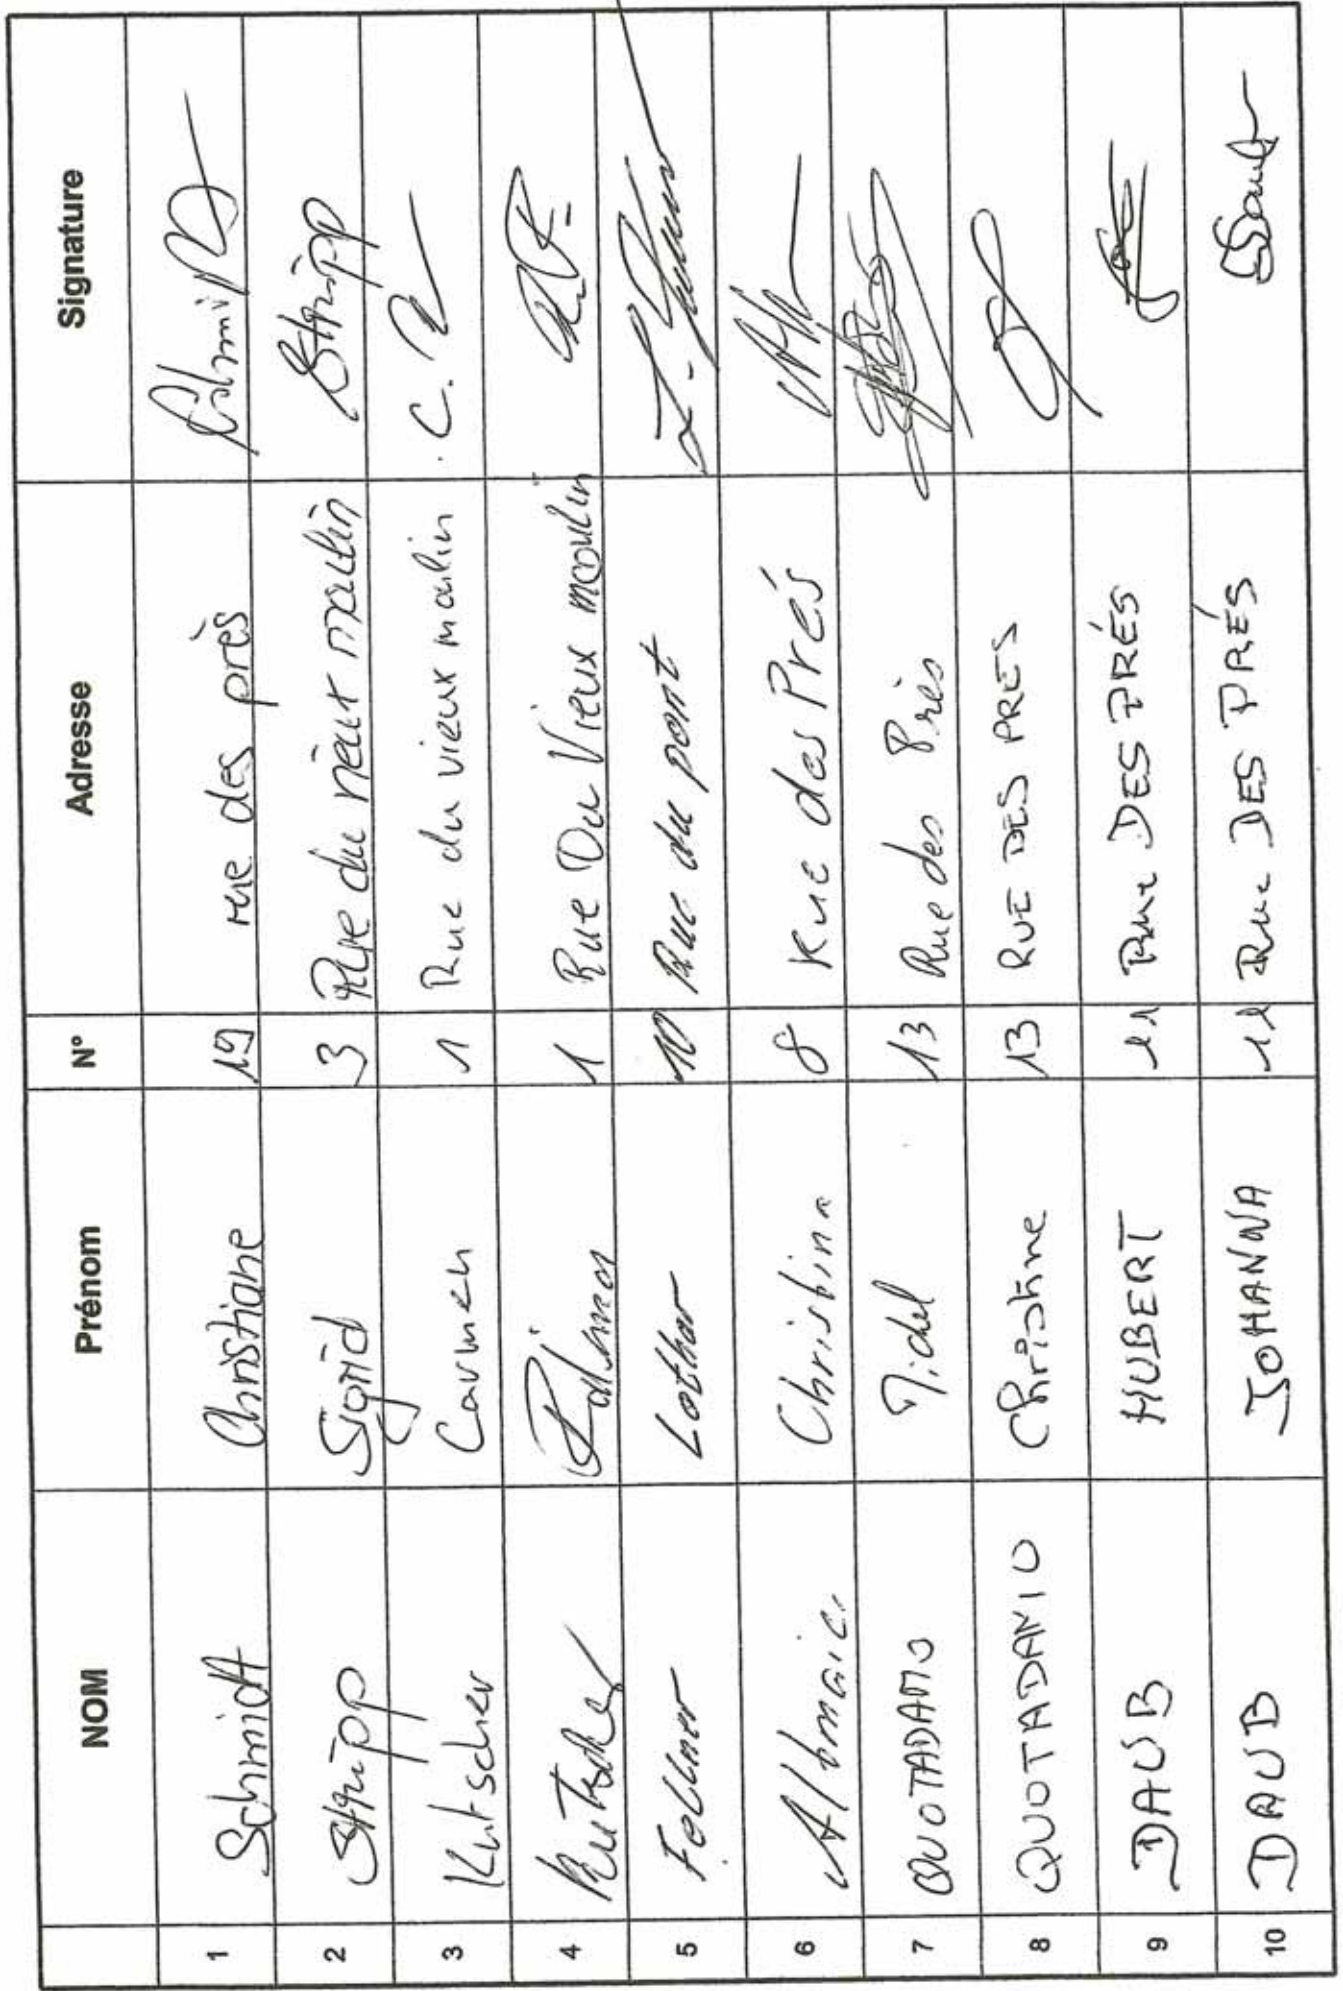 NOM Prénom N° Adresse Signature
1 Schmidt Christiane 19 rue des près Schmidt
2 Stripp Sigrid 3 Rue du vieux moulin Stripp
3 Kutscher Carmen 1 Rue du vieux moulin C.
4 Kutscher 1 Rue Du Vieux moulin
5 Fellner Lothar 10 Rue du pont
6 Christina 8 Rue des Prés
7 QUOTADAMO Michel 13 Rue des Près
8 QUOTADAMO Christine 13 RUE DES PRES
9 DAUB HUBERT 11 Rue DES PRÉS
10 DAUB JOHANNA 11 Rue DES PRÉS Daub